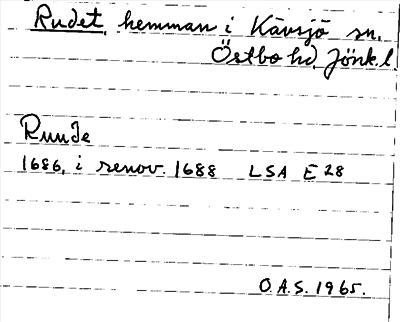 Rudet, hemman i Kävsjö sn.
Östbo hd, Jönk. l.
Ruude
1686, i renov. 1688 LSA E 28
O.A.S. 1965.